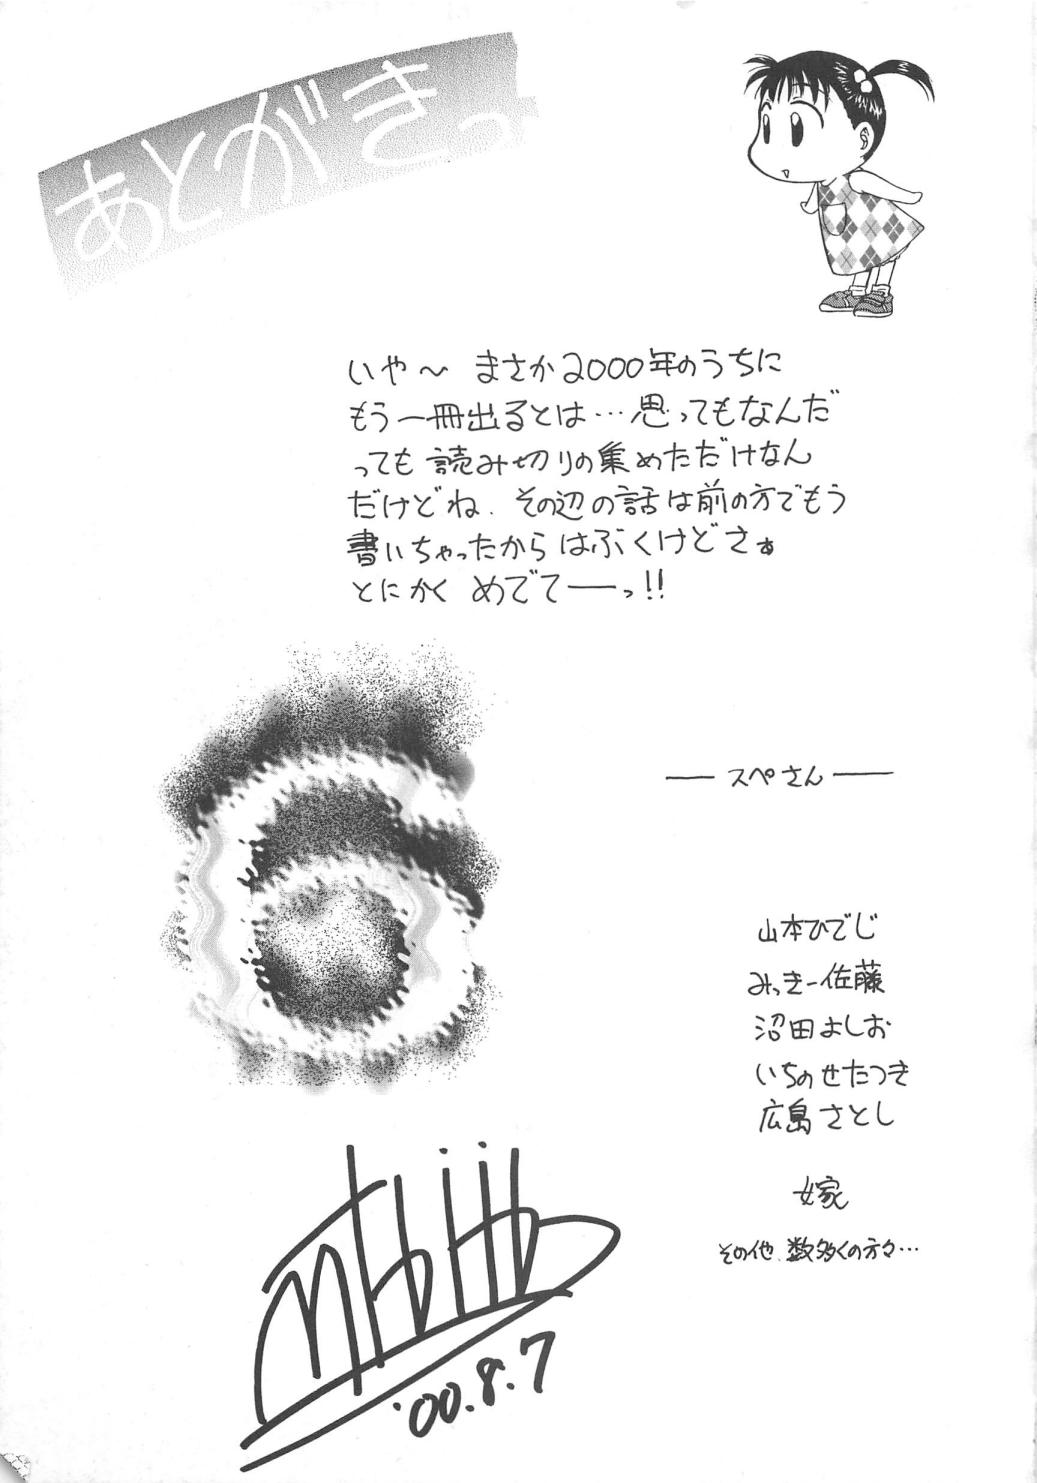 あとがきっ
いや～ まさか2000年のうちに
もう一冊出るとは…思ってもなんだ
っても 読み切りの集めただけなん
だけどね、その辺の話は前の方でもう
書いちゃったから はぶくけどさぁ
とにかく めでてーっ!!
スペさん
山本ひでじ
みっきー佐藤
沼田よしお
いちのせたつき
広島さとし
嫁
その他、数多くの方々…
'00.8.7